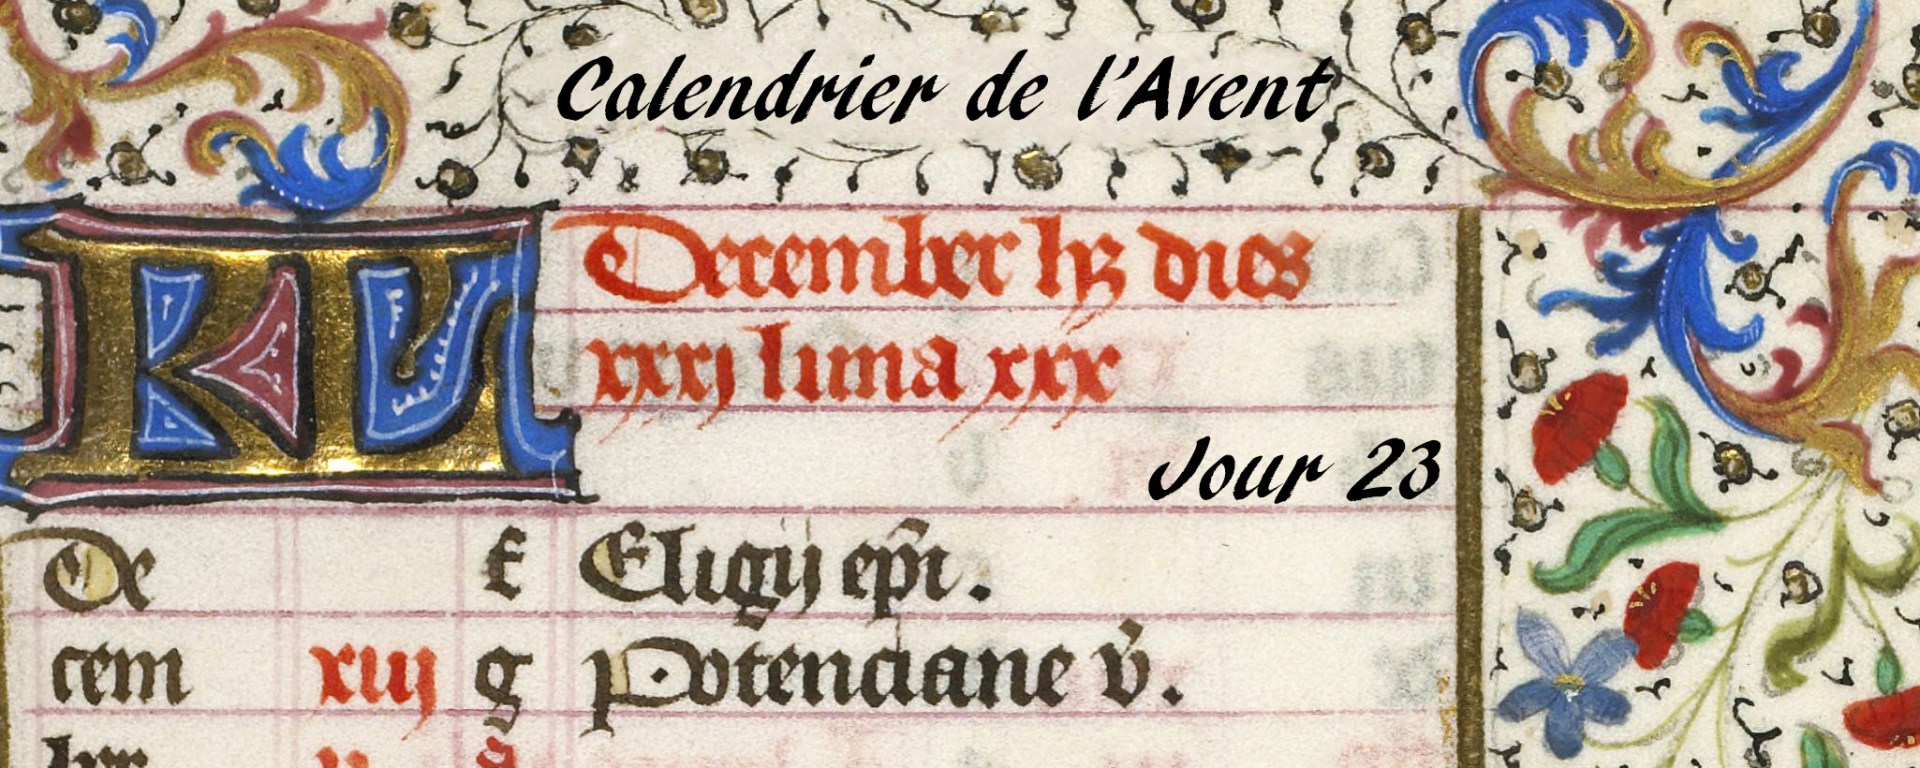 Calendrier de l'Avent
KL December hꝫ dies
xxxj luna xxx
Jour 23
De f Eligij ep̄i.
cem xiij g Potenciane v̄.